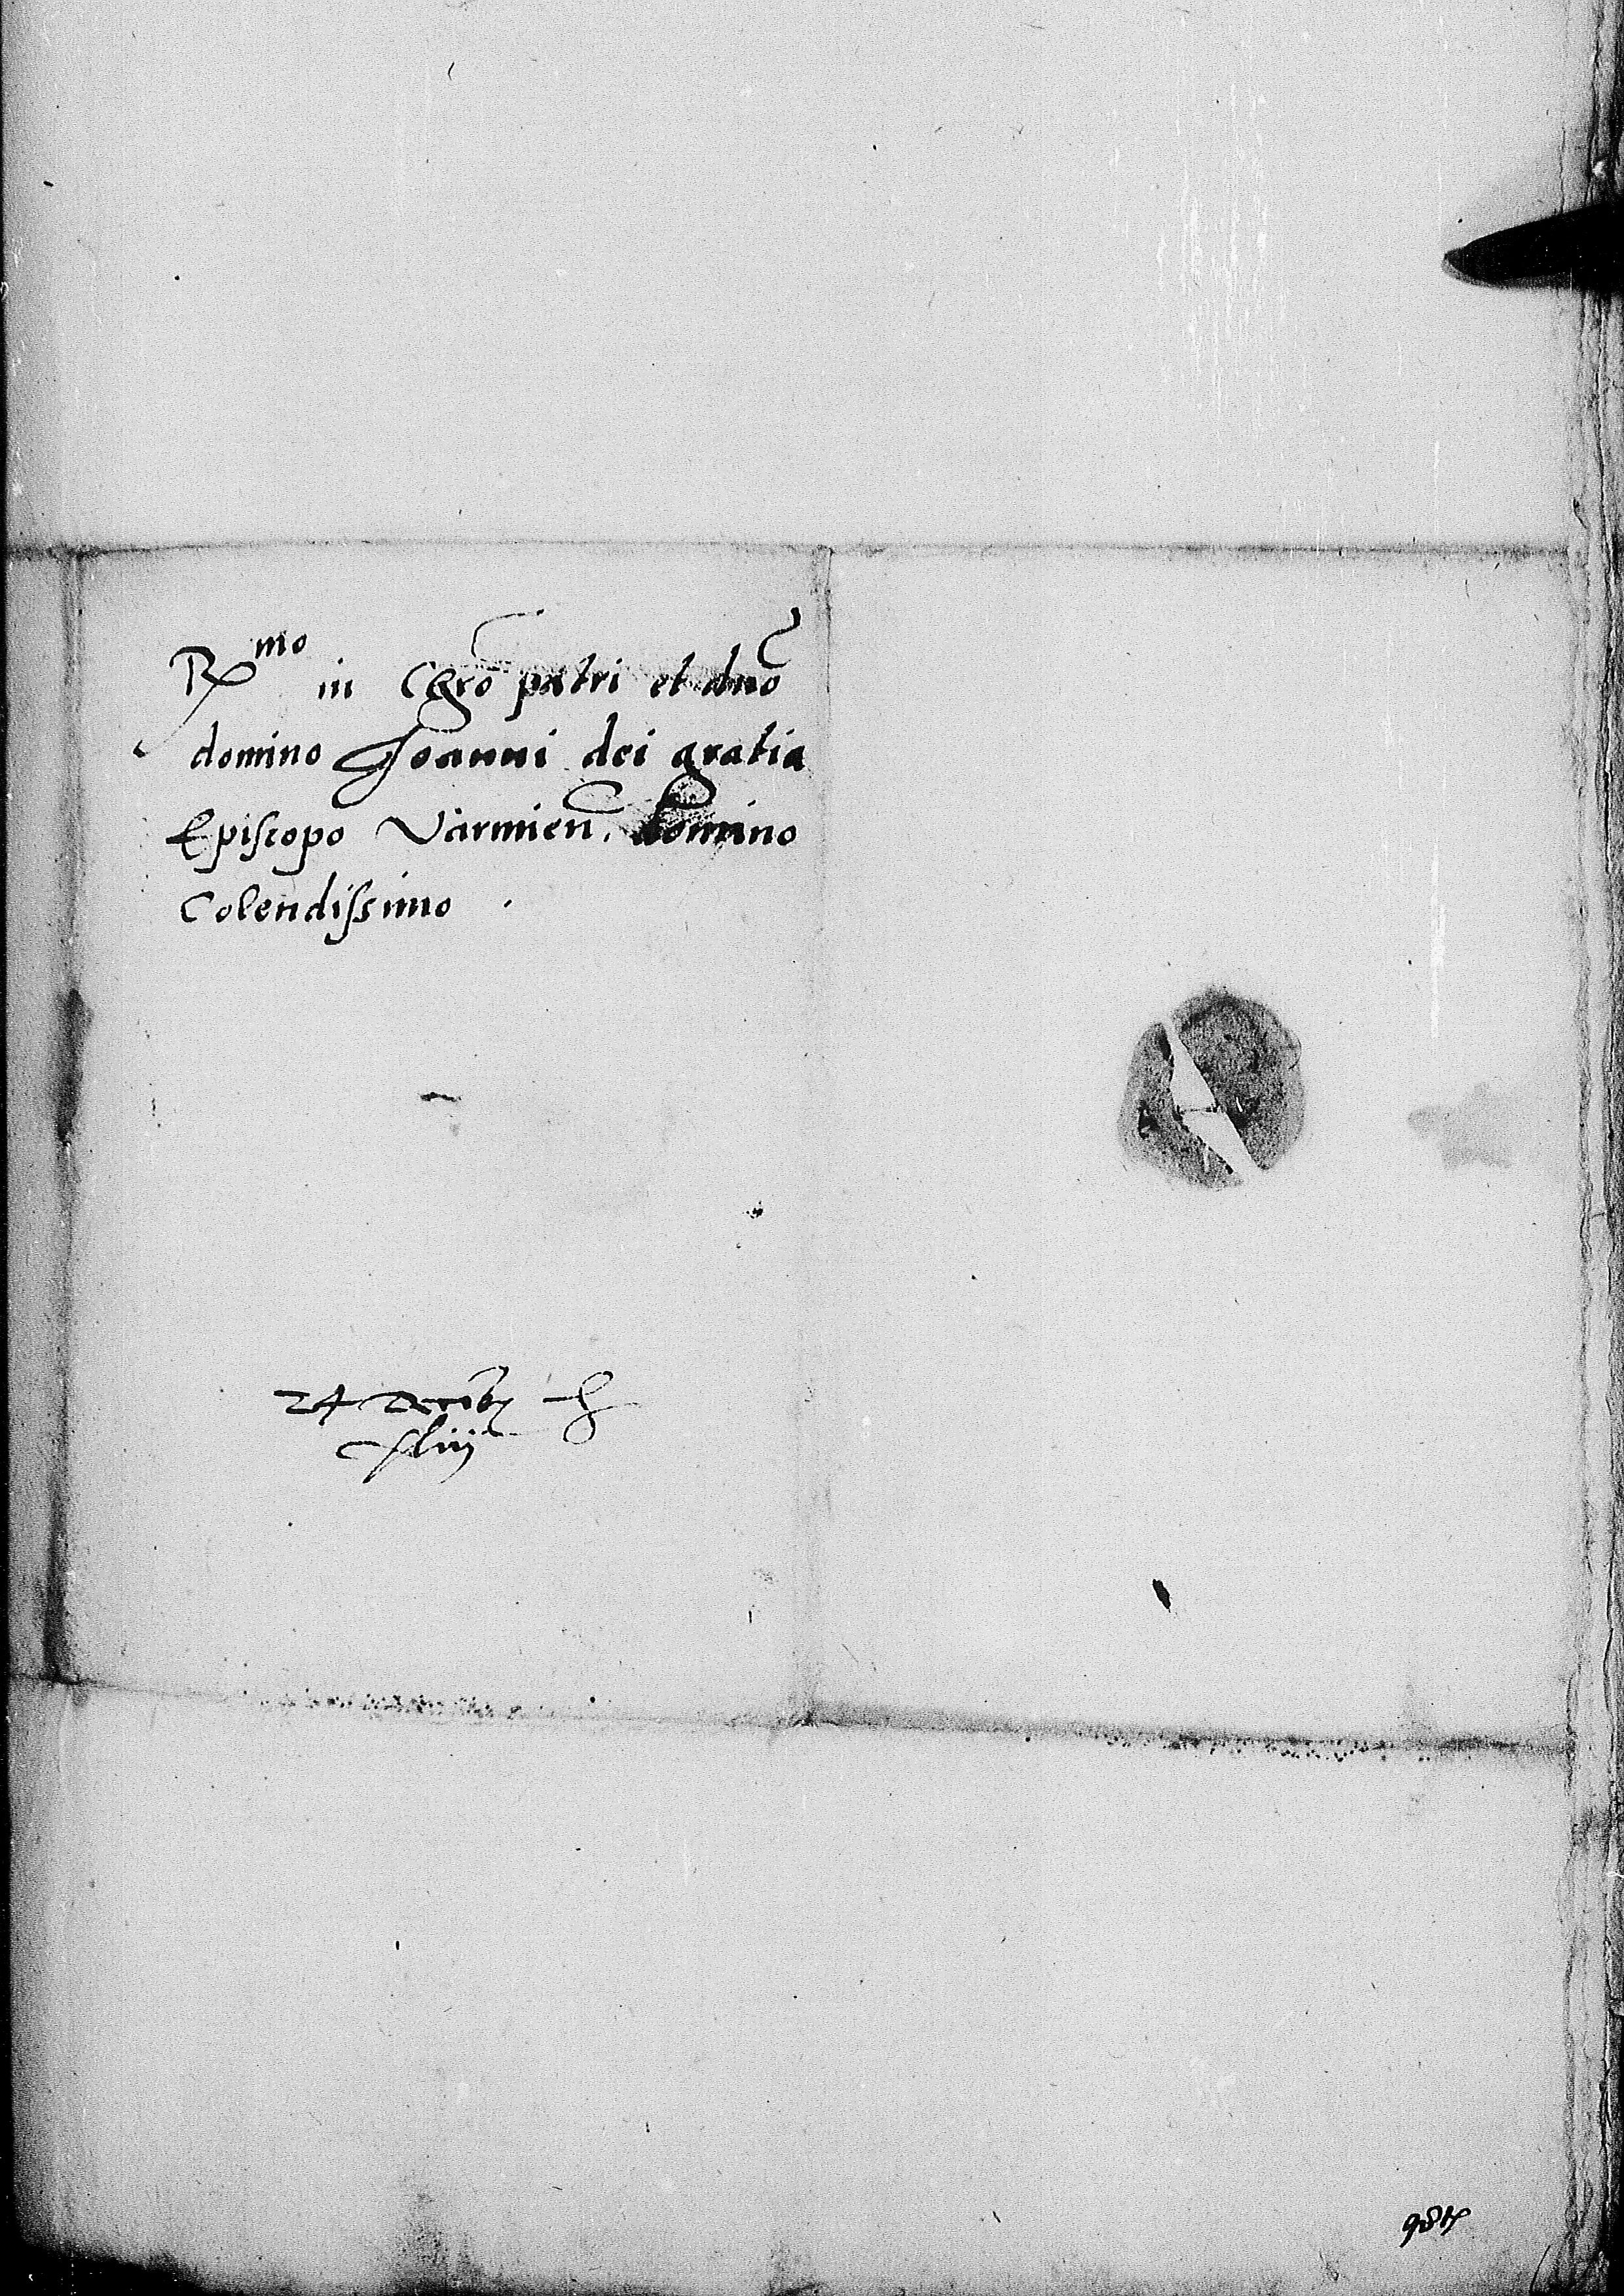 R^mo in Chrō patri et dnō
domino Joanni dei gratia
Episcopo Varmien̄. domino
Colendissimo .
24 decēbr̄
xliij